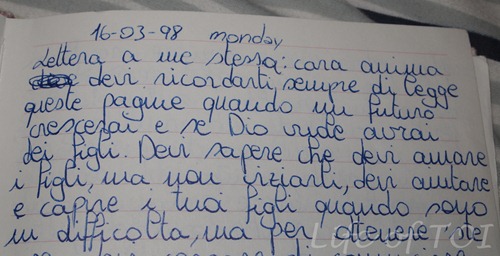 16-03-98 monday
Lettera a me stessa: cara anima
devi ricordarti sempre di legge
queste pagine quando in futuro
crescerai e se Dio vuole avrai
dei figli. Devi sapere che devi amare
i figli, ma non viziarli, devi aiutare
e capire i tuoi figli quando sono
in difficolta, ma per ottenere ste
Lyc of TOI